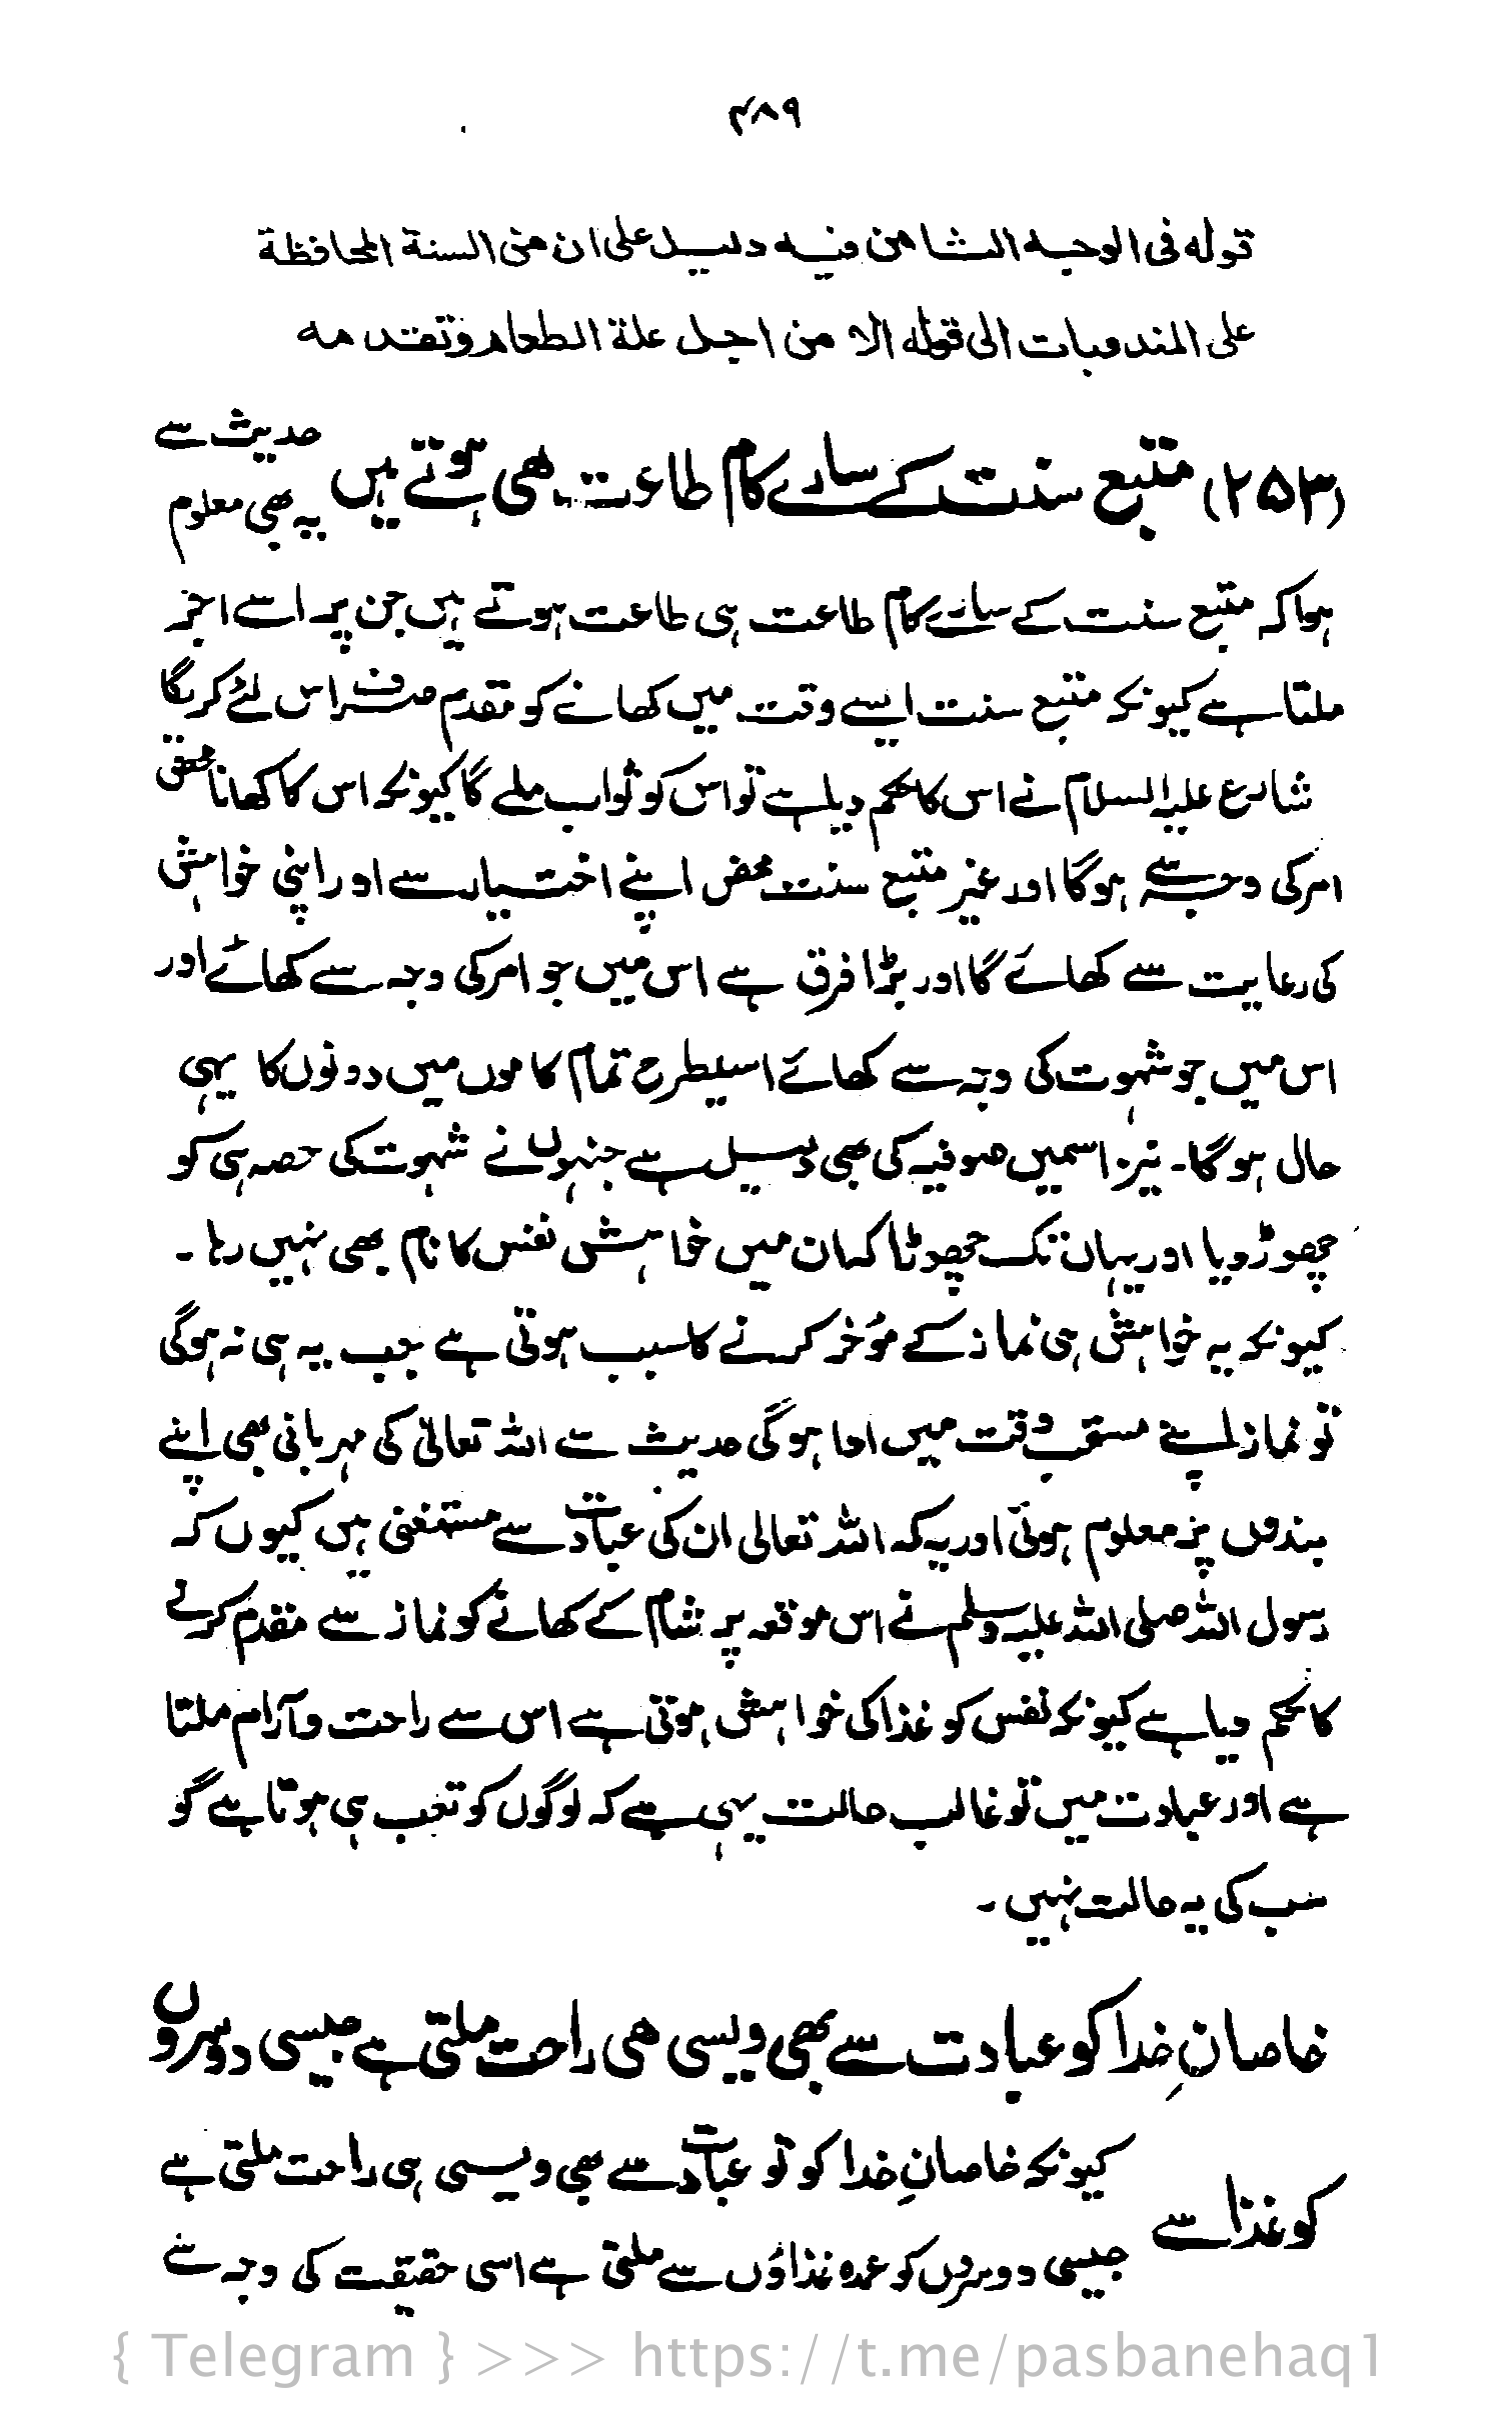 ۴۸۹
قوله فی الوجه الثامن فیه دلیل علی ان من السنة المحافظة
علی المندوبات الی قوله الا من اجل علة الطعام وتقدمه
(۲۵۳) متبع سنت کے سارے کام طاعت ھی ہوتے ہیں حدیث سے
یہ بھی معلوم
ہوا کہ متبع سنت کے سارے کام طاعت ہی طاعت ہوتے ہیں جن پر اسے اجر
ملتا ہے کیونکہ متبع سنت ایسے وقت میں کھانے کو مقدم صرف اس لئے کریگا
شارع علیہ السلام نے اس کا حکم دیا ہے تو اس کو ثواب ملے گا کیونکہ اس کا کھانا محض
امر کی وجہ سے ہوگا اور غیر متبع سنت محض اپنے اختیار سے اور اپنی خواہش
کی رعایت سے کھائے گا اور بڑا فرق ہے اس میں جو امر کی وجہ سے کھائے اور
اس میں جو شہوت کی وجہ سے کھائے اسیطرح تمام کاموں میں دونوں کا یہی
حال ہوگا۔ نیز اسمیں صوفیہ کی بھی دلیل ہے جنہوں نے شہوت کی حصہ ہی کو
چھوڑ دیا اور یہاں تک چھوٹا کہ ان میں خواہش نفس کا نام بھی نہیں رہا ۔
کیونکہ یہ خواہش ہی نماز کے مؤخر کرنے کا سبب ہوتی ہے جب یہ ہی نہ ہوگی
تو نماز اپنے مستحب وقت میں ادا ہوگی حدیث سے اللہ تعالیٰ کی مہربانی بھی اپنے
بندوں پر معلوم ہوئی اور یہ کہ اللہ تعالی ان کی عبادت سے مستغنی ہیں کیوں کہ
رسول اللہ صلی اللہ علیہ وسلم نے اس موقعہ پر شام کے کھانے کو نماز سے مقدم کرنے
کا حکم دیا ہے کیونکہ نفس کو غذا کی خواہش ہوتی ہے اس سے راحت و آرام ملتا
ہے اور عبادت میں تو غالب حالت یہی ہے کہ لوگوں کو تعب ہی ہوتا ہے گو
سب کی یہ حالت نہیں ۔
خاصانِ خدا کو عبادت سے بھی ویسی ھی راحت ملتی ہے جیسی دوسروں
کو غذا سے کیونکہ خاصانِ خدا کو تو عبادت سے بھی ویسی ہی راحت ملتی ہے
جیسی دوسروں کو عمدہ غذاؤں سے ملتی ہے اسی حقیقت کی وجہ سے
{ Telegram } >>> https://t.me/pasbanehaq1